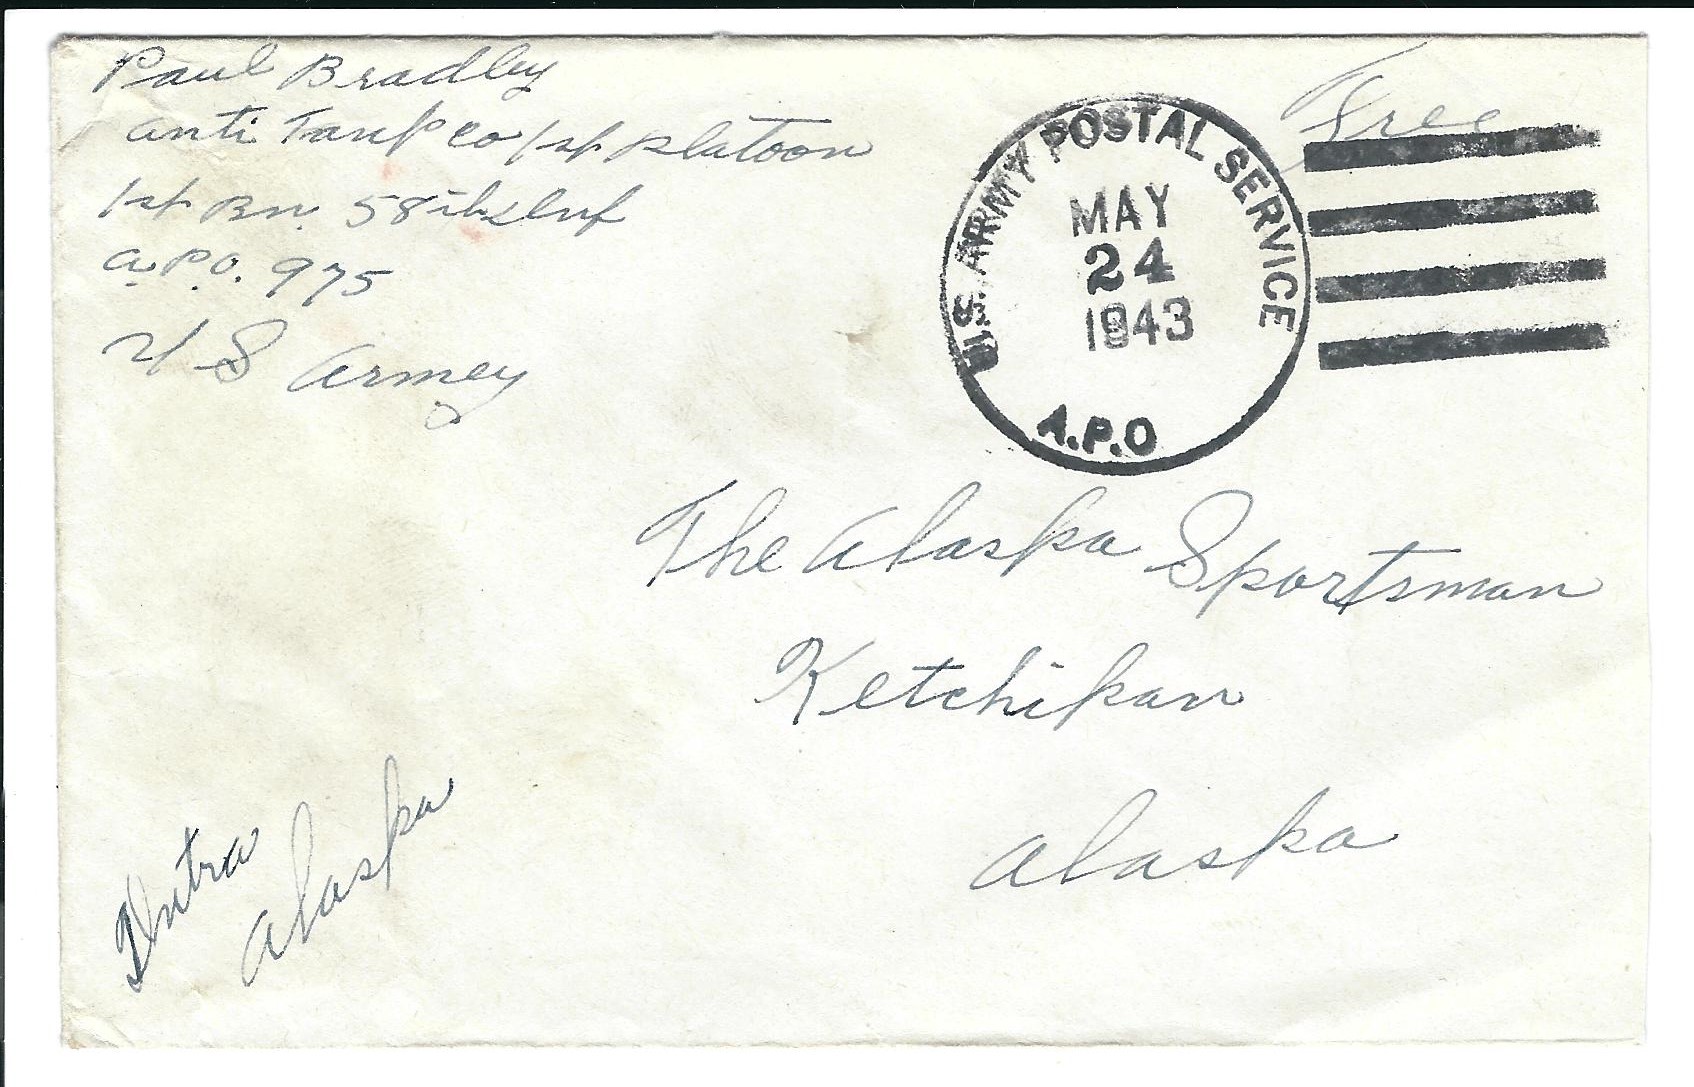 Paul Bradley
Anti Tank Co 1st Platoon
1st Bn. 58th Inf
A.P.O. 975
U S Armey
Free
U.S. ARMY POSTAL SERVICE
MAY
24
1943
A.P.O
The Alaska Sportsman
Ketchikan
Alaska
Intra
Alaska